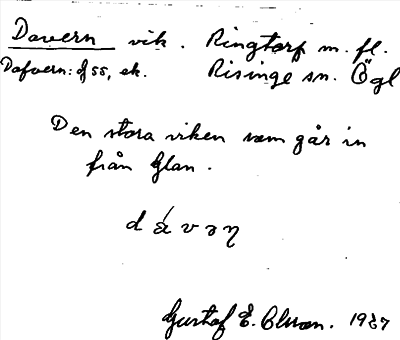 Davern vik. Ringtorp m. fl.
Dafvern: af 55, ek. Risinge sn. Ögl
Den stora viken som går in
från Glan.
d á v ə n
Gustaf E. Olsson. 1927